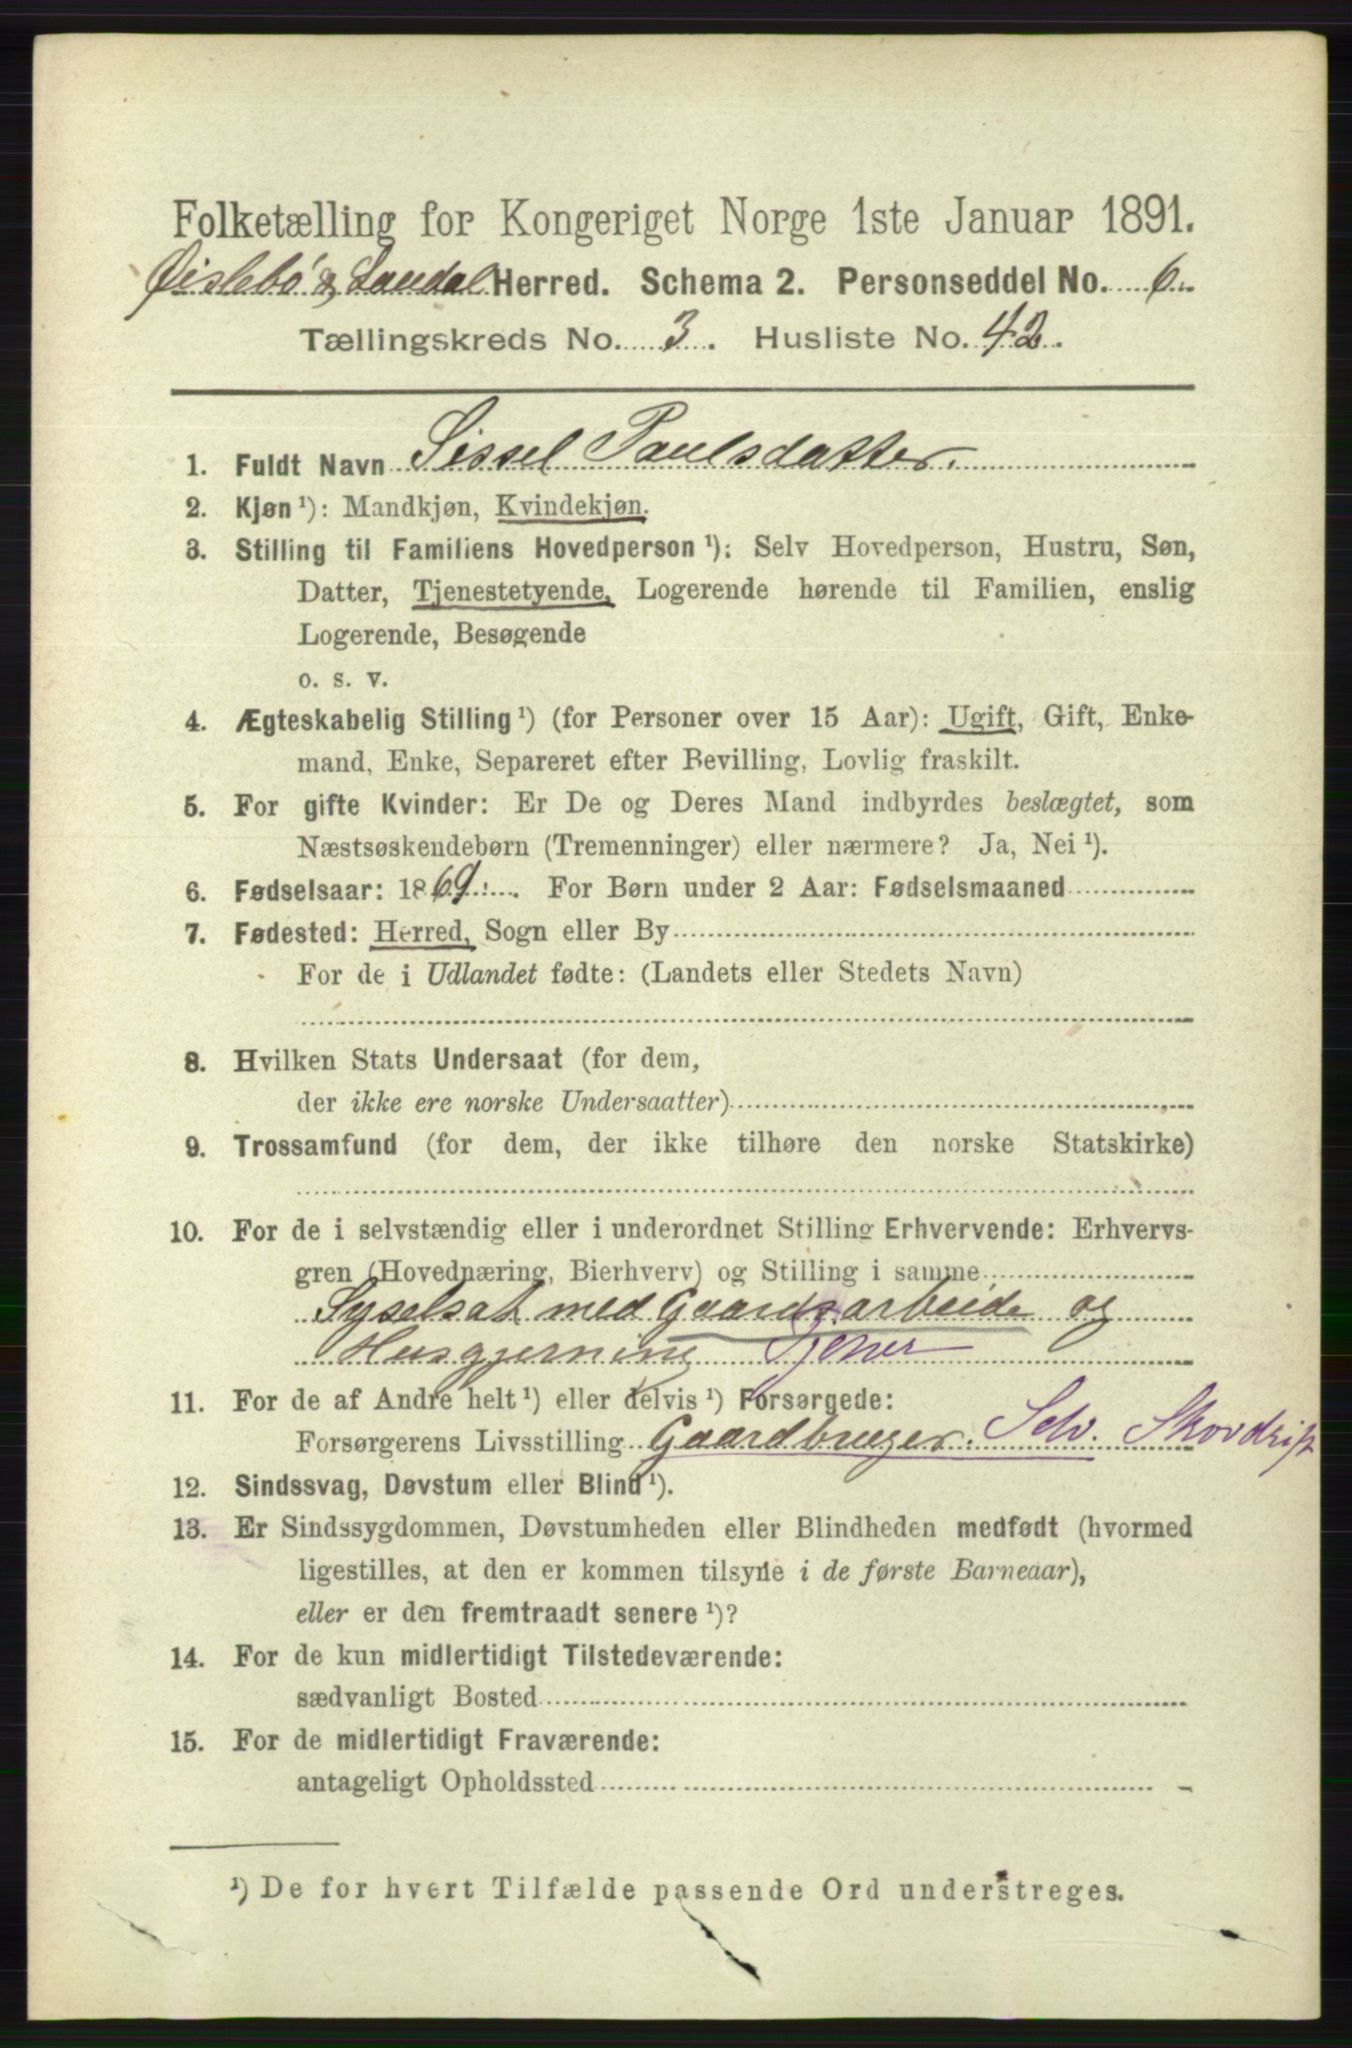 Folketælling for Kongeriget Norge 1ste Januar 1891.
Øislebö & Laudal Herred. Schema 2. Personseddel No. 6.
Tællingskreds No. 3. Husliste No. 42.
1. Fuldt Navn Sissel Paulsdatter.
2. Kjøn ¹): Mandkjøn, Kvindekjøn.
3. Stilling til Familiens Hovedperson ¹): Selv Hovedperson, Hustru, Søn,
Datter, Tjenestetyende, Logerende hørende til Familien, enslig
Logerende, Besøgende
o. s. v.
4. Ægteskabelig Stilling ¹) (for Personer over 15 Aar): Ugift, Gift, Enke-
mand, Enke, Separeret efter Bevilling, Lovlig fraskilt.
5. For gifte Kvinder: Er De og Deres Mand indbyrdes beslægtet, som
Næstsøskendebørn (Tremenninger) eller nærmere? Ja, Nei ¹).
6. Fødselsaar: 1869. For Børn under 2 Aar: Fødselsmaaned
7. Fødested: Herred, Sogn eller By
For de i Udlandet fødte: (Landets eller Stedets Navn)
8. Hvilken Stats Undersaat (for dem,
der ikke ere norske Undersaatter)
9. Trossamfund (for dem, der ikke tilhøre den norske Statskirke)
10. For de i selvstændig eller i underordnet Stilling Erhvervende: Erhvervs-
gren (Hovednæring, Bierhverv) og Stilling i samme
Syselsat med Gaardsarbeide og
Husgjerning Tjener
11. For de af Andre helt ¹) eller delvis ¹) Forsørgede:
Forsørgerens Livsstilling Gaardbruger. Selv. Skovdrift
12. Sindssvag, Døvstum eller Blind ¹).
13. Er Sindssygdommen, Døvstumheden eller Blindheden medfødt (hvormed
ligestilles, at den er kommen tilsyne i de første Barneaar),
eller er den fremtraadt senere ¹)?
14. For de kun midlertidigt Tilstedeværende:
sædvanligt Bosted
15. For de midlertidigt Fraværende:
antageligt Opholdssted
¹) De for hvert Tilfælde passende Ord understreges.